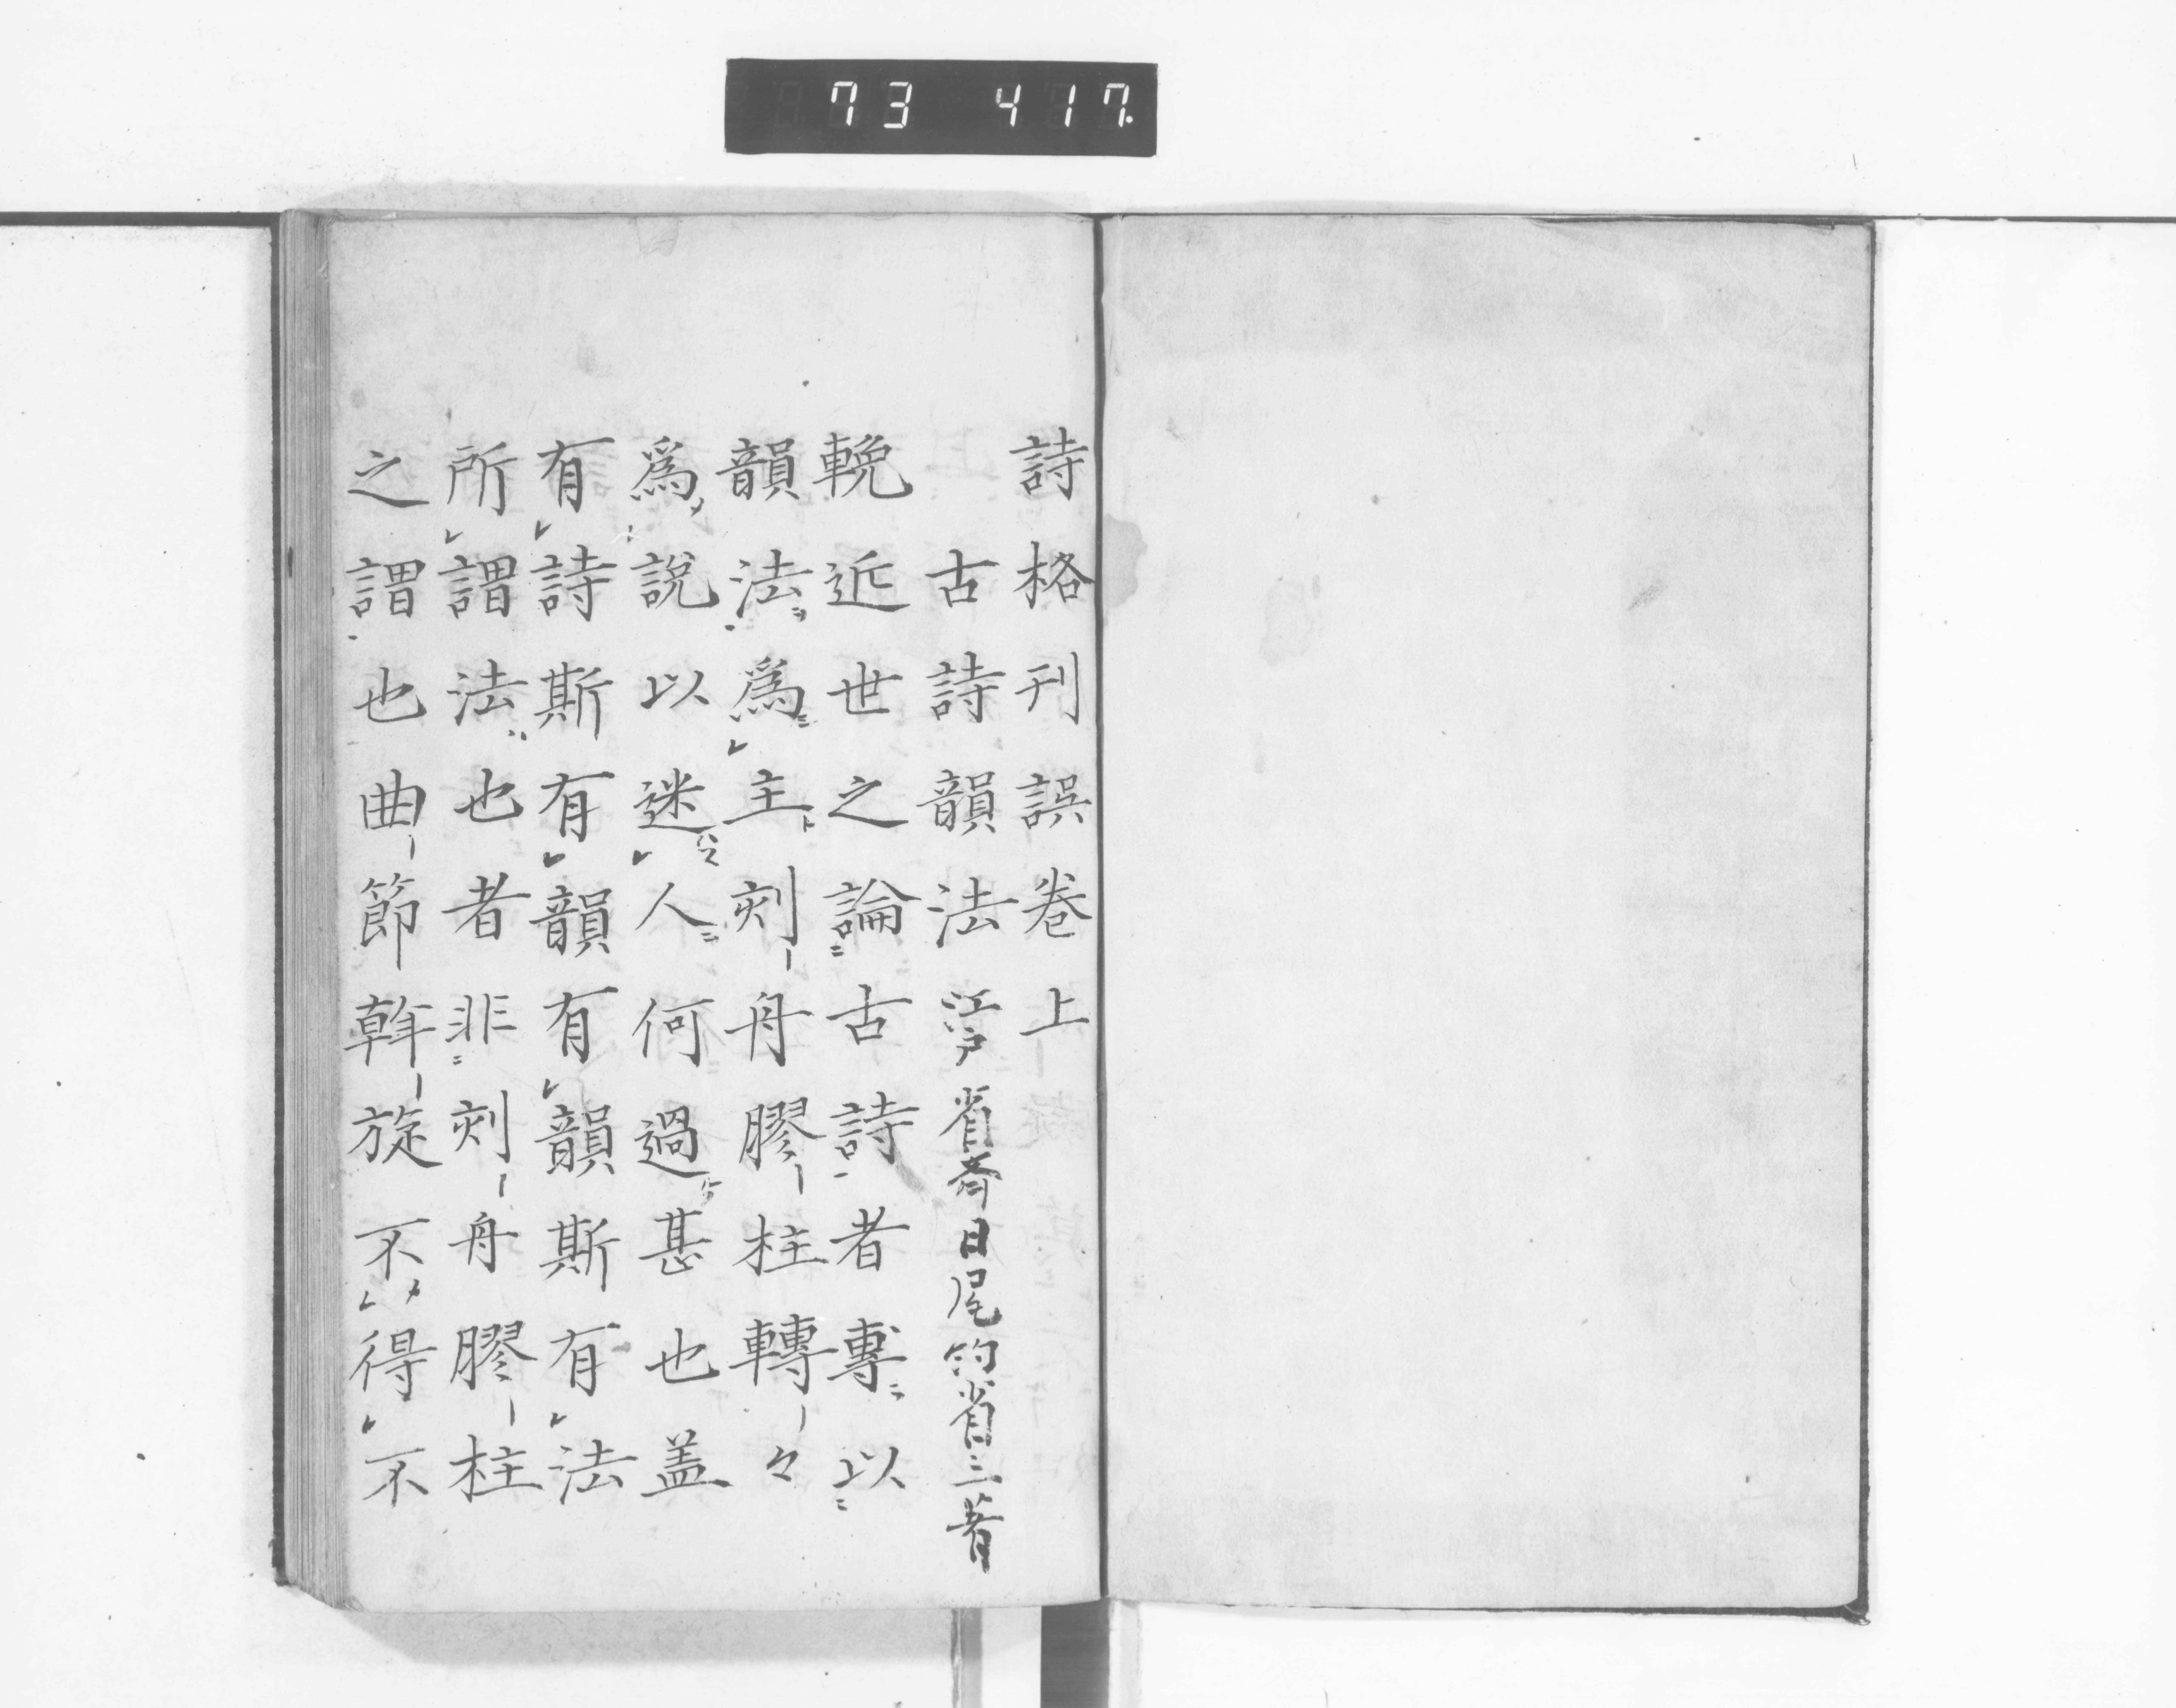 73 417.
詩格刊誤卷上
古詩韻法 江戸 省斎 日尾約省三著
輓近世之論古詩者專以
韻法爲主刻舟膠柱轉々
爲說以迷人何過甚也盖
有詩斯有韻有韻斯有法
所謂法也者非刻舟膠柱
之謂也曲節斡旋不得不